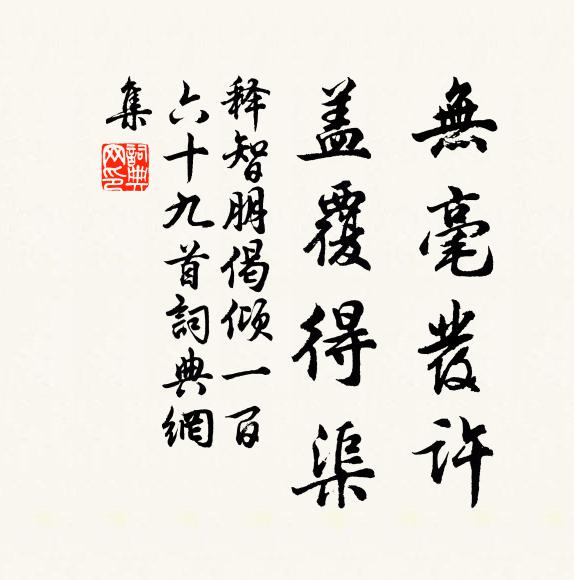 無毫發许
盖覆得渠
释智朋偈倾一百
六十九首詞典網
集
詞典网印